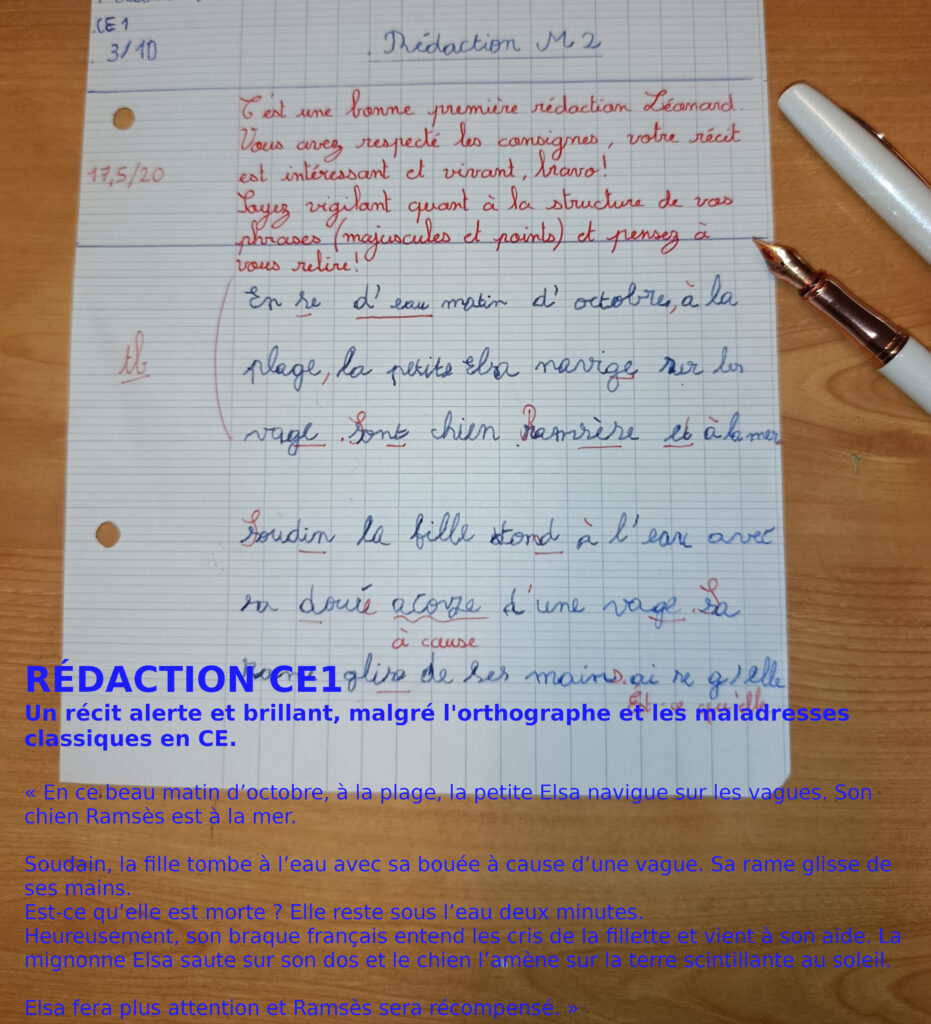 CE1
3/10
Rédaction M2
C'est une bonne première rédaction Léonard.
Vous avez respecté les consignes, votre récit
17,5/20
est intéressant et vivant, bravo!
Soyez vigilant quant à la structure de vos
phrases (majuscules et points) et pensez à
vous relire!
En se d'eau matin d'octobre, à la
tb
plage, la petite Elsa navige sur les
vage. Sont chien Ramsère et à la mer
Soudin la fille tond à l'eau avec
sa doué acouze d'une vage. Sa
à cause
rame glise de ses mains. ai se q'elle
Est-ce qu'elle
RÉDACTION CE1
Un récit alerte et brillant, malgré l'orthographe et les maladresses
classiques en CE.
« En ce beau matin d’octobre, à la plage, la petite Elsa navigue sur les vagues. Son
chien Ramsès est à la mer.
Soudain, la fille tombe à l’eau avec sa bouée à cause d’une vague. Sa rame glisse de
ses mains.
Est-ce qu’elle est morte ? Elle reste sous l’eau deux minutes.
Heureusement, son braque français entend les cris de la fillette et vient à son aide. La
mignonne Elsa saute sur son dos et le chien l’amène sur la terre scintillante au soleil.
Elsa fera plus attention et Ramsès sera récompensé. »